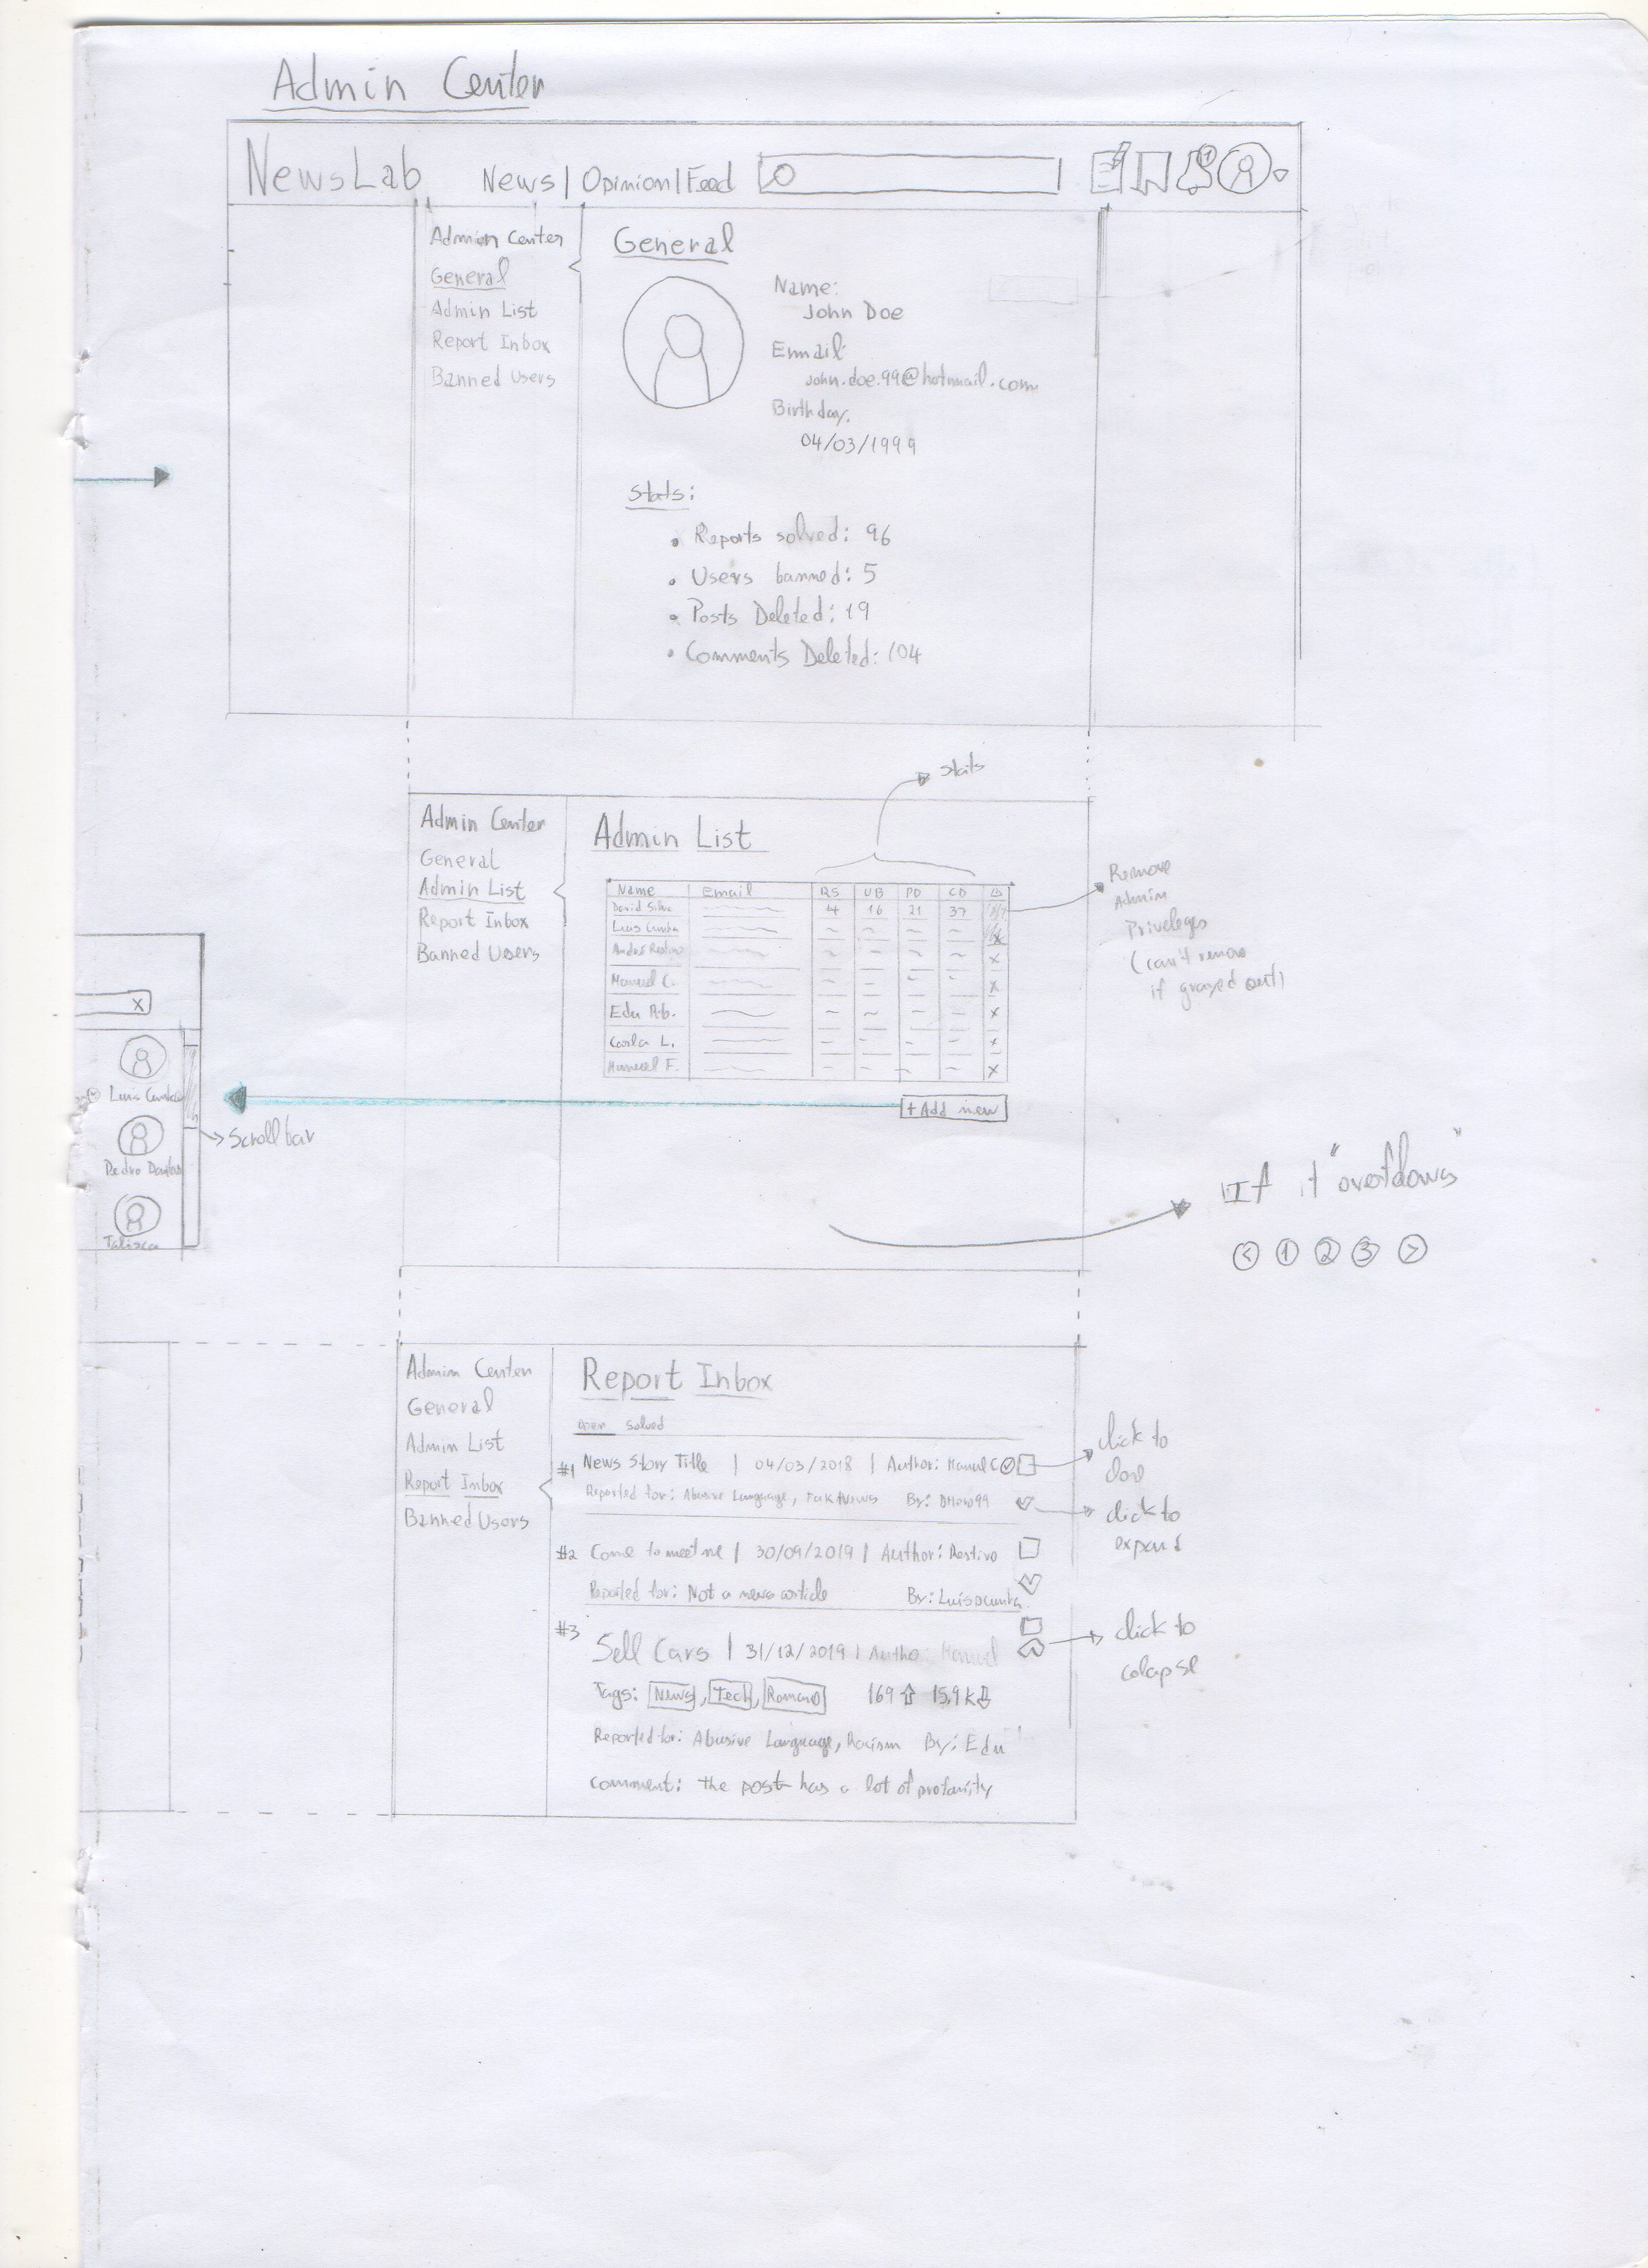 Admin Center
NewsLab News | Opinion | Feed
Admin Center
General
Admin List
Report Inbox
Banned Users
General
Name:
John Doe
Email:
john.doe.99@hotmail.com
Birthday:
04/03/1999
Stats:
• Reports solved: 96
• Users banned: 5
• Posts Deleted: 19
• Comments Deleted: 104
Stats
Admin Center
General
Admin List
Report Inbox
Banned Users
Admin List
Name Email RS UB PD CD
David Silva 4 16 21 37
Luis Cunha x
André Restivo x
Manuel C. x
Edu Rib. x
Carla L. x
Manuel F. x
+ Add new
Remove
Admin
Priveleges
(can't remove
if grayed out)
x
Luis Cunha
Pedro
Talisca
Scroll bar
If it "overflows"
< 1 2 3 >
Admin Center
General
Admin List
Report Inbox
Banned Users
Report Inbox
Open Solved
#1 News Story Title | 04/03/2018 | Author: Manuel C
Reported for: Abusive Language, Fake News By:
#2 Come to meet me | 30/09/2019 | Author: Restivo
Reported for: Not a news article By: Luisocunha
#3 Sell Cars | 31/12/2019 | Autho: Manuel
Tags: News, Tech, 169 15,9k
Reported for: Abusive Language, Racism By: Edu
Comment: the post has a lot of profanity
click to
click to
expand
click to
colapse